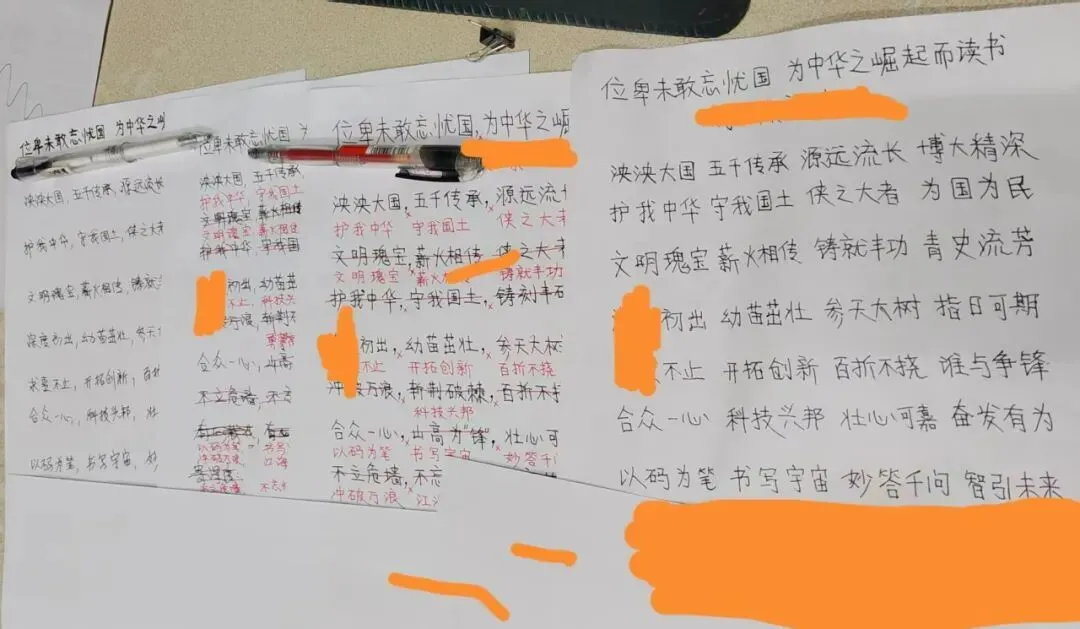 位卑未敢忘忧国 为中华之
泱泱大国,五千传承,源远流长
护我中华,守我国土,侠之大
文明瑰宝,薪火相传,铸就
深度初出,幼苗茁壮,参天
求素不止,开拓创新,百折
合众一心,科技兴邦,壮
以码为笔,书写宇宙,妙
位卑未敢忘忧国
泱泱大国,五千传承
护我中华,守我国土
文明瑰宝,薪火相传
文明瑰宝 薪火相传
护我中华,守我国
初出,幼苗茁
不止,科技兴
万浪,斩荆
合众一心,出高
不立危墙,不忘
以码为笔 书写
冲破万浪
不忘
位卑未敢忘忧国,为中华之崛
泱泱大国,五千传承,源远流
护我中华 守我国土 侠之大者
文明瑰宝,薪火相传,侠之大
文明瑰宝 薪火 铸就丰功
护我中华,守我国土,铸刻丰
初出,幼苗茁壮,参天大树
不止 开拓创新 百折不挠
冲破万浪,斩荆破棘,百折不
科技兴邦
合众一心,出高为"锋",壮心可
以码为笔 书写宇宙 妙答千
不立危墙,不忘
冲破万浪 江
位卑未敢忘忧国 为中华之崛起而读书
泱泱大国 五千传承 源远流长 博大精深
护我中华 守我国土 侠之大者 为国为民
文明瑰宝 薪火相传 铸就丰功 青史流芳
初出 幼苗茁壮 参天大树 指日可期
不止 开拓创新 百折不挠 谁与争锋
合众一心 科技兴邦 壮心可嘉 奋发有为
以码为笔 书写宇宙 妙答千问 智引未来